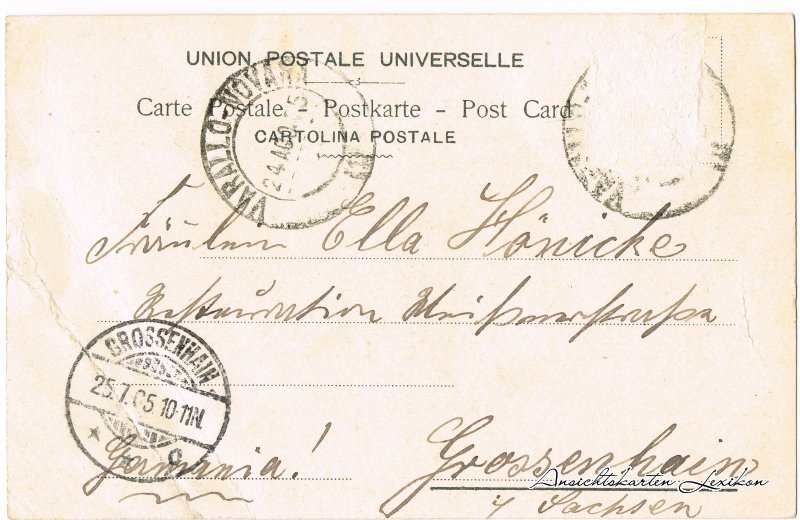 UNION POSTALE UNIVERSELLE
Carte Postale - Postkarte - Post Card
CARTOLINA POSTALE
VARALLO-NOVARA
Fräulein Ella Hönicke
Restauration Meißnerstraße
GROSSENHAIN
25.7.05 10-11N.
Germania!
Grossenhain
i/ Sachsen
Ansichtskarten Lexikon